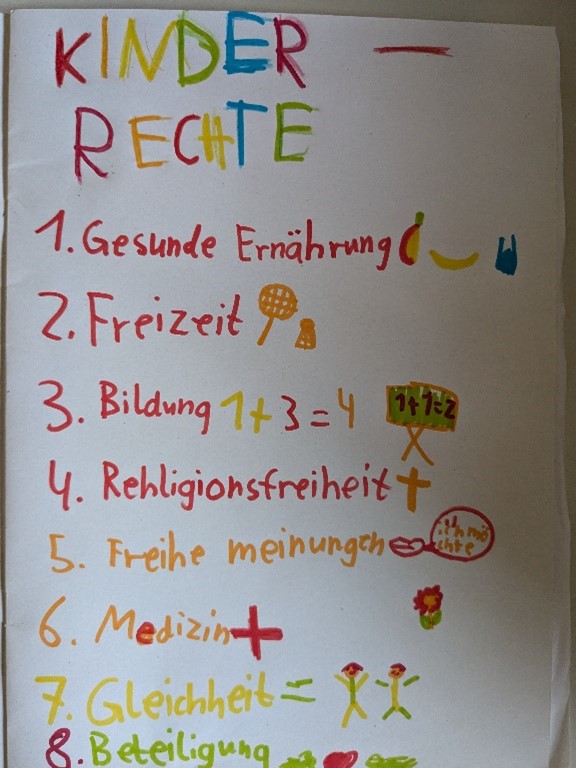 KINDER –
RECHTE
1. Gesunde Ernährung
2. Freizeit
3. Bildung 1+3=4 1+1=2
4. Rehligionsfreiheit
5. Freihe meinungen ich mö
chte
6. Medizin
7. Gleichheit =
8. Beteiligung